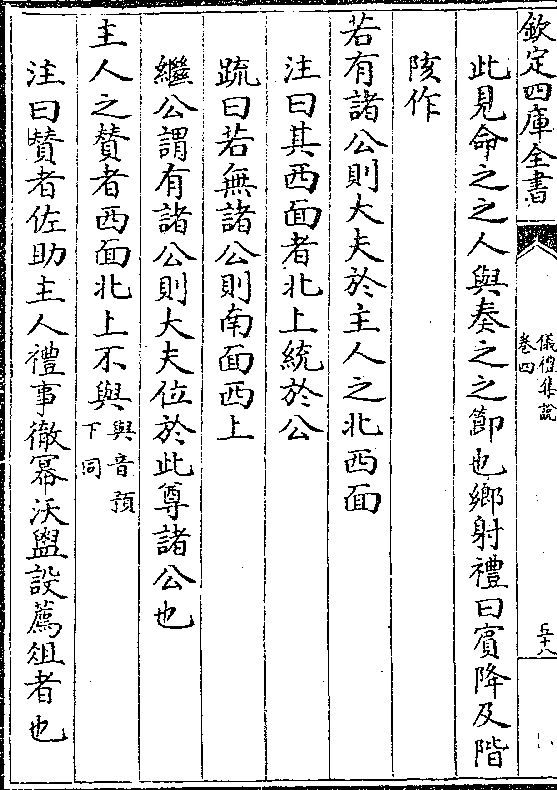 欽定四庫全書
儀禮集說
卷四
五十八
此見命之之人與奏之之節也鄉射禮曰賓降及階
陔作
若有諸公則大夫於主人之北西面
注曰其西面者北上統於公
䟽曰若無諸公則南面西上
繼公謂有諸公則大夫位於此尊諸公也
主人之贊者西面北上不與與音預下同
注曰贊者佐助主人禮事徹冪沃盥設薦俎者也